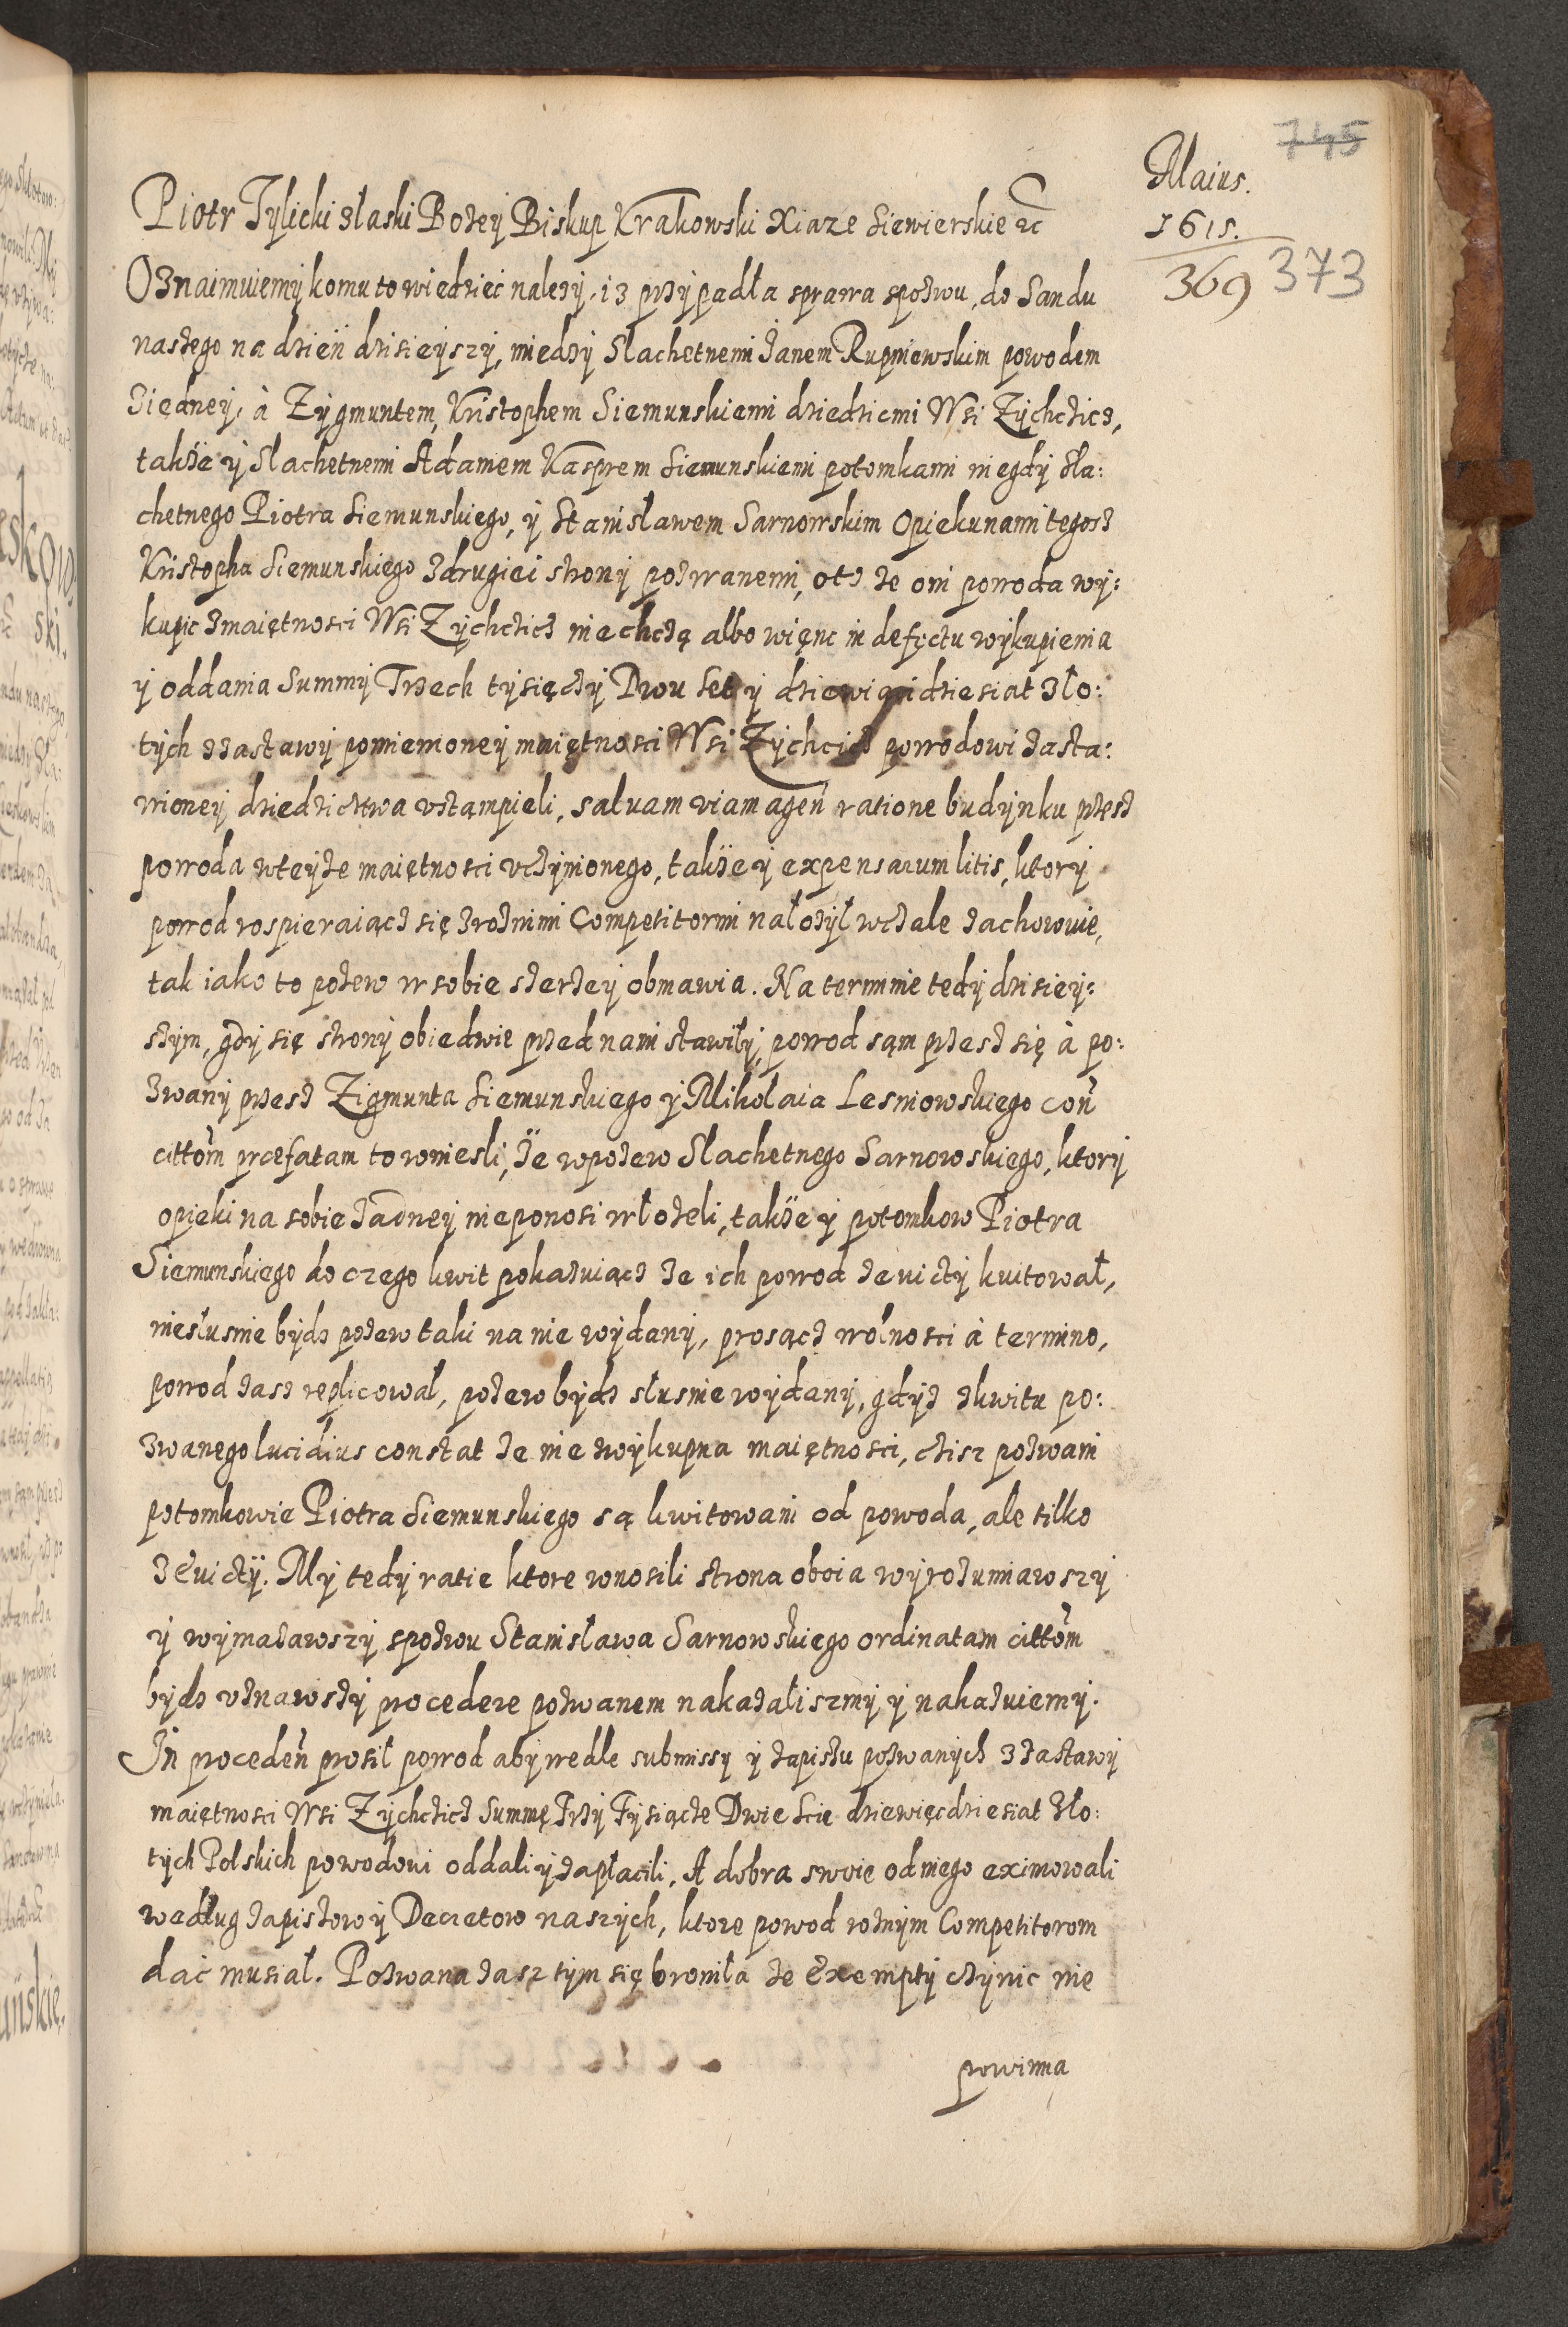 745
Maius.
1615.
369 373
Piotr Tylicki z łaski Bozey Biskup Krakowski Xiaze Siewierskie &c
Oznaimuiemy komu to wiedzieć nalezy, iz przypadła sprawa spozwu, do Sandu
naszego na dzień dzisieyszy, miedzy Slachetnemi Janem Rupniowskim powodem
ziedney, à Zygmuntem, Kristophem Siemunskiemi dziedzicmi Wsi Zychczicz,
takze y Slachetnemi Adamem Kasprem Siemunskiemi potomkami niegdy Sla:
chetnego Piotra Siemunskiego, y Stanisławem Sarnowskim Opiekunami tegosz
Kristopha Siemunskiego zdrugiei strony pozwanemi, otz ze oni powoda wy:
kupic zmaiętnosci Wsi Zychczicz niechczą albo więnc in defectu wykupienia
y oddania Summy Trzech tysięczy Dwu set y dziewiąidziesiat zło:
tych zzastawy pomienioney maiętnosci Wsi Zychcicz powodowi zasta:
wioney dziedzictwa vstąmpieli, saluam viam agen̄ ratione budynku przesz
powoda wteyze maiętnosci vczynionego, takze y expensarum litis, ktory
powod rospieraiącz się zroznimi Competitormi nałozył wczale zachowuie,
tak iako to pozew w sobie szerzey obmawia. Na terminie tedy dzisiey:
szym, gdy się strony obiedwie przed nami stawiły, powod sąm przesz się à po:
zwany przesz Zigmunta Siemunskiego y Mikołaia Lesniowskiego con̄
cittōm prœfatam to wniesli, ze wpozew Slachetnego Sarnowskiego, ktory
opieki na sobie zadney nieponosi włozeli, takze y potomkow Piotra
Siemunskiego do czego kwit pokazuiącz ze ich powod zeuicty kwitował,
niesłusnie bydz pozew taki na nie wydany, prosącz wolnosci à termino,
powod zasz replicował, pozew bydz słusnie wydany, gdyz zkwitu po:
zwanego lucidius constat ze nie zwykupna maiętnosci, czisz pozwani
potomkowie Piotra Siemunskiego są kwitowani od powoda, ale tilko
zeuictÿ. My tedy ratie ktore wnosili strona oboia wyrozumiawszy
y wymazawszy spozwu Stanisława Sarnowskiego ordinatam cittōm
bydz vznawszy procedere pozwanem nakazaliszmy y nakazuiemy.
In proceden̄ prosił powod aby wedle submissy y zapiszu pozwanych zzastawy
maiętnosci Wsi Zychczicz Summę Trzy Tysiącze Dwie Scie dziewięcdziesiat Zło:
tych Polskich powodowi oddali y zapłacili, A dobra swoie od niego eximowali
według zapiszow y Decretow naszych, ktore powod roznym Competitorom
dać musiał. Pozwana zasz tym się broniła ze Exempty czynic nie
powinna